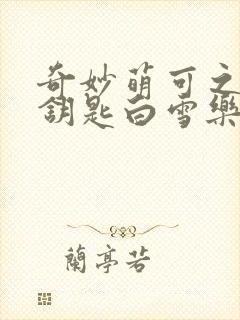 奇妙萌可之
鑰匙白雪樂
蘭亭若